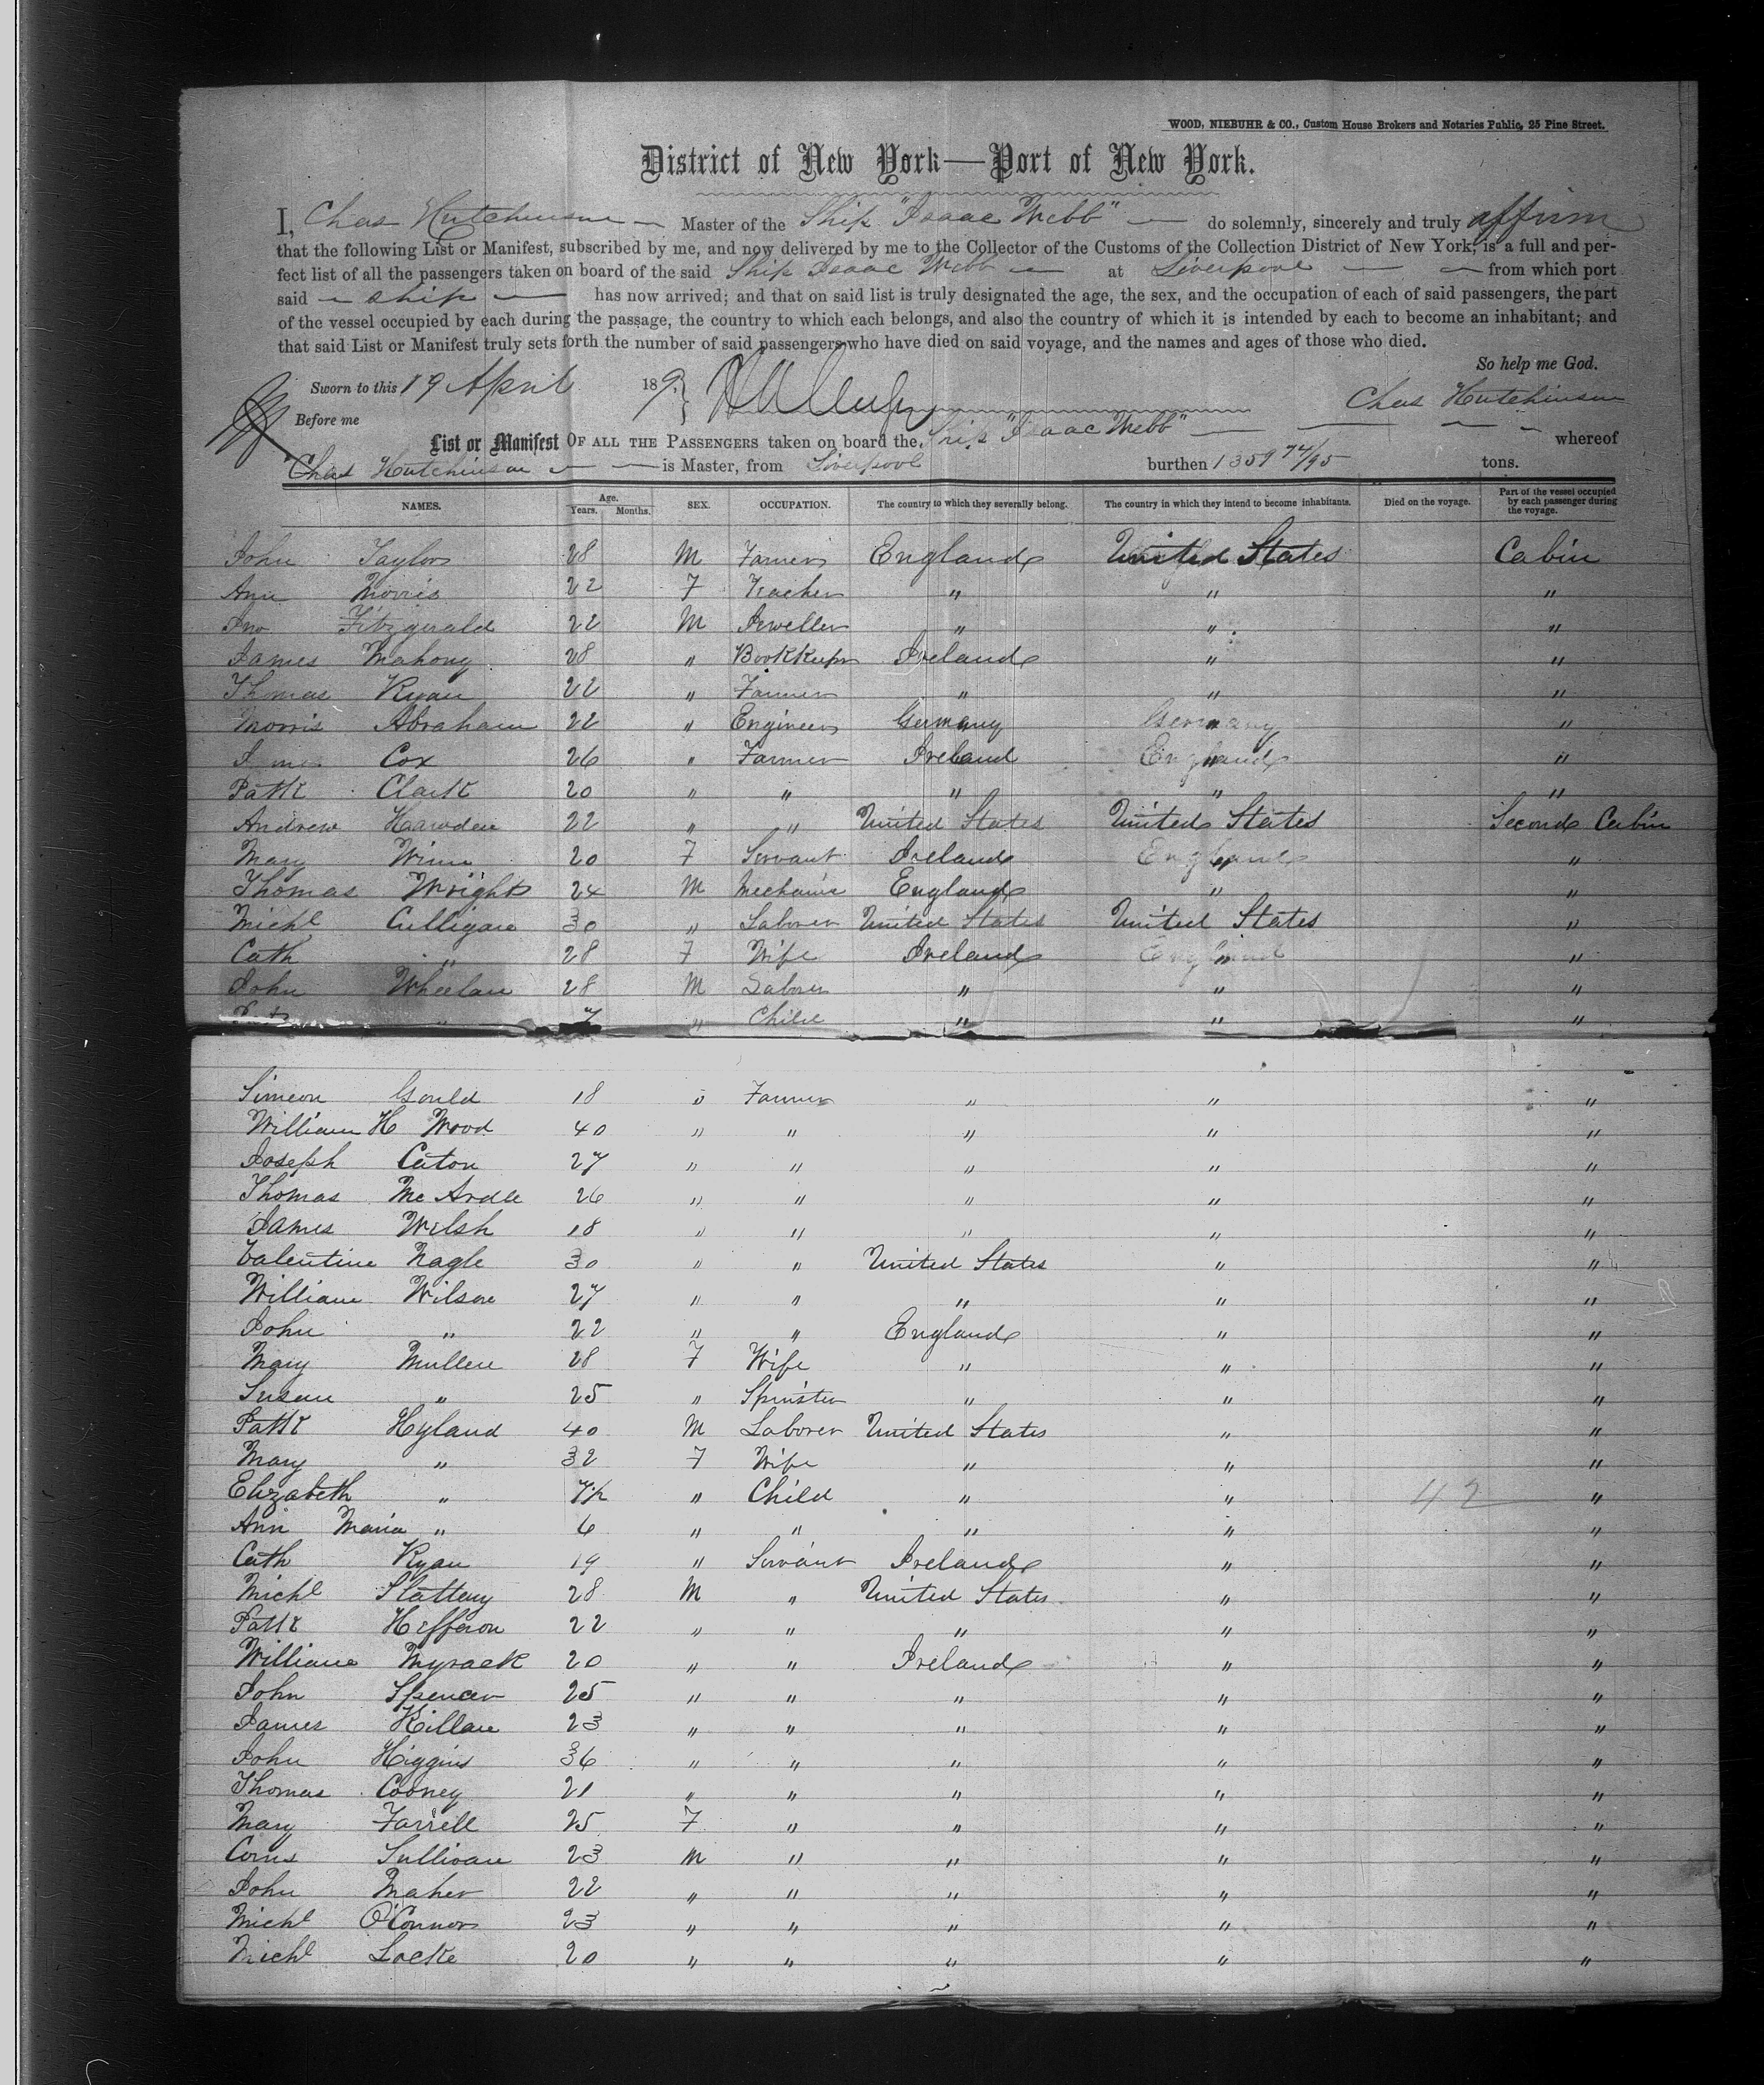 WOOD, NIEBUHR & CO., Custom House Brokers and Notaries Public, 25 Pine Street.
District of New York—Port of New York.
I, Chas Hutchinson Master of the Ship "Isaac Webb" do solemnly, sincerely and truly affirm
that the following List or Manifest, subscribed by me, and now delivered by me to the Collector of the Customs of the Collection District of New York, is a full and per-
fect list of all the passengers taken on board of the said Ship Isaac Webb at Liverpool from which port
said ship has now arrived; and that on said list is truly designated the age, the sex, and the occupation of each of said passengers, the part
of the vessel occupied by each during the passage, the country to which each belongs, and also the country of which it is intended by each to become an inhabitant; and
that said List or Manifest truly sets forth the number of said passengers who have died on said voyage, and the names and ages of those who died.
So help me God.
Sworn to this 19 April 18 9
Chas Hutchinson
Before me
List or Manifest OF ALL THE PASSENGERS taken on board the Ship "Isaac Webb" whereof
Chas Hutchinson is Master, from Liverpool burthen 1359 74/95 tons.
NAMES. Age. Years. Months. SEX. OCCUPATION. The country to which they severally belong. The country in which they intend to become inhabitants. Died on the voyage. Part of the vessel occupied by each passenger during the voyage.
John Taylor 28 M Farmer England United States Cabin
Ann Morris 22 F Teacher " " "
Jno Fitzgerald 22 M Jeweller " " "
James Mahony 28 " Bookkeepr Ireland " "
Thomas Ryan 22 " Farmer " " "
Morris Abraham 22 " Engineer Germany Germany "
Cox 26 " Farmer Ireland England "
Patk Clark 20 " " " " "
Andrew Hawden 22 " " United States United States Second Cabin
Mary Winn 20 F Servant Ireland England "
Thomas Wright 24 M Mechanic England " "
Michl Culligan 30 " Laborer United States United States "
Cath " 28 F Wife Ireland England "
John Wheelan 28 M Laborer " " "
" 7 " Child " " "
Simeon Gould 18 " Farmer " " "
William H Wood 40 " " " " "
Joseph Caton 27 " " " " "
Thomas McArdle 26 " " " " "
James Welsh 18 " " " " "
Valentine Nagle 30 " " United States " "
William Wilson 27 " " " " "
John " 22 " " England " "
Mary Mullen 28 F Wife " " "
Susan " 25 " Spinster " " "
Patk Hyland 40 M Laborer United States " "
Mary " 32 F Wife " " "
Elizabeth " 7½ " Child " " 42 "
Ann Maria " 6 " " " " "
Cath Ryan 19 " Servant Ireland " "
Michl Slattery 28 M " United States " "
Patk Hefferon 22 " " " " "
William Myrack 20 " " Ireland " "
John Spencer 25 " " " " "
James Killan 23 " " " " "
John Higgins 36 " " " " "
Thomas Cooney 21 " " " " "
Mary Farrell 25 F " " " "
Corns Sullivan 23 M " " " "
John Maher 22 " " " " "
Michl O'Connor 23 " " " " "
Michl Locke 20 " " " " "